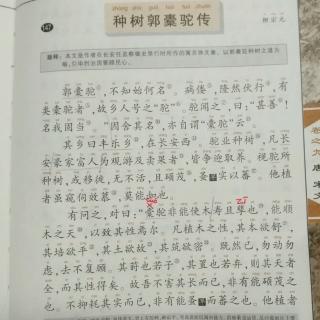 147
zhòng shù guō tuó tuó zhuàn
种树郭橐驼传
柳宗元
题释：本文是作者在长安任监察御史里行时所作的寓言体文章，以郭橐驼种树之道为
喻，引申到治国
郭橐驼，不知始何名。病偻，隆然伏行，有
类橐驼者，故乡人号之“驼”。驼闻之，曰：“甚善！
名我固当。”因舍其名，亦自谓“橐驼”云。
其乡曰丰乐乡，在长安西。驼业种树，凡长
安豪家富人为观游及卖果者，皆争迎取养。视驼所
种树，或移徙，无不活，且硕茂，蚤实以蕃。他植
者虽窥伺效慕，莫能如也。
有问之，对曰：“橐驼非能使木寿且孳也，能顺
木之天，以致其性焉尔。凡植木之性，其本欲舒，
其培欲平，其土欲故，其筑欲密。既然已，勿动勿
虑，去不复顾。其莳也若子，其置也若弃，则其天者
全而其性得矣。故吾不害其长而已，非有能硕茂之
也。不抑耗其实而已，非有能蚤而蕃之也。他植者
卷之九
唐宋文